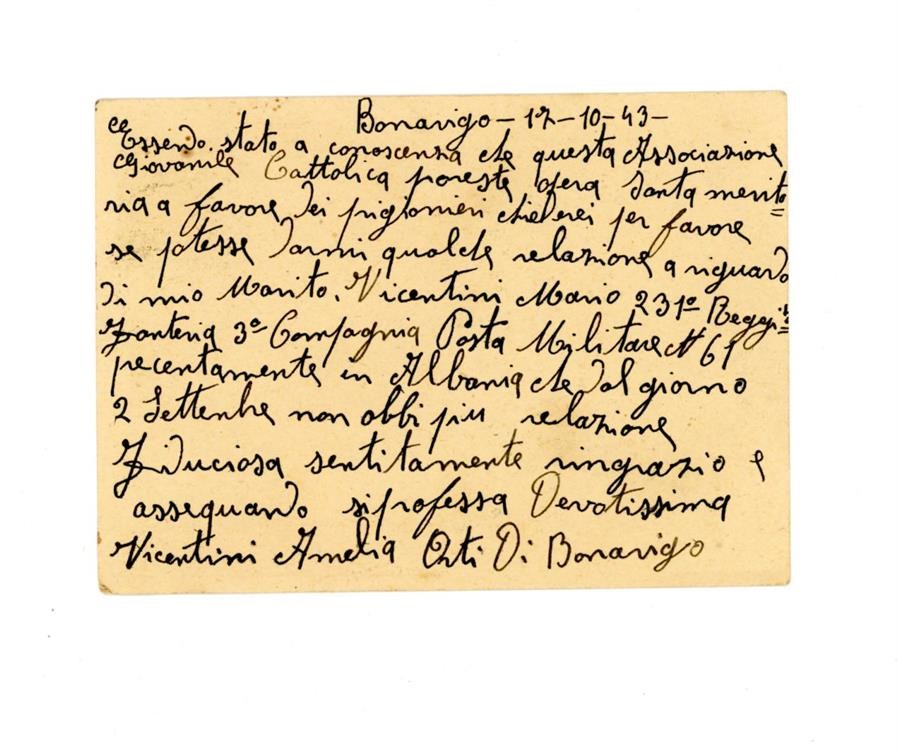 Bonavigo - 17-10-43-
Essendo stato a conoscenza che questa Associazione
Giovanile Cattolica poreste opera santa merito=
ria a favore dei prigionieri chiederei per favore
se potesse darmi qualche relazione a riguardo
di mio Marito. Vicentini Mario 231º Reggi=
Fanteria 3ª Compagnia Posta Militare Nº 61
recentamente in Albania che dal giorno
2 Settembre non obbi piu relazione
Fiduciosa sentitamente ringrazio e
assequando si professa Devotissima
Vicentini Amelia Orti Di Bonavigo